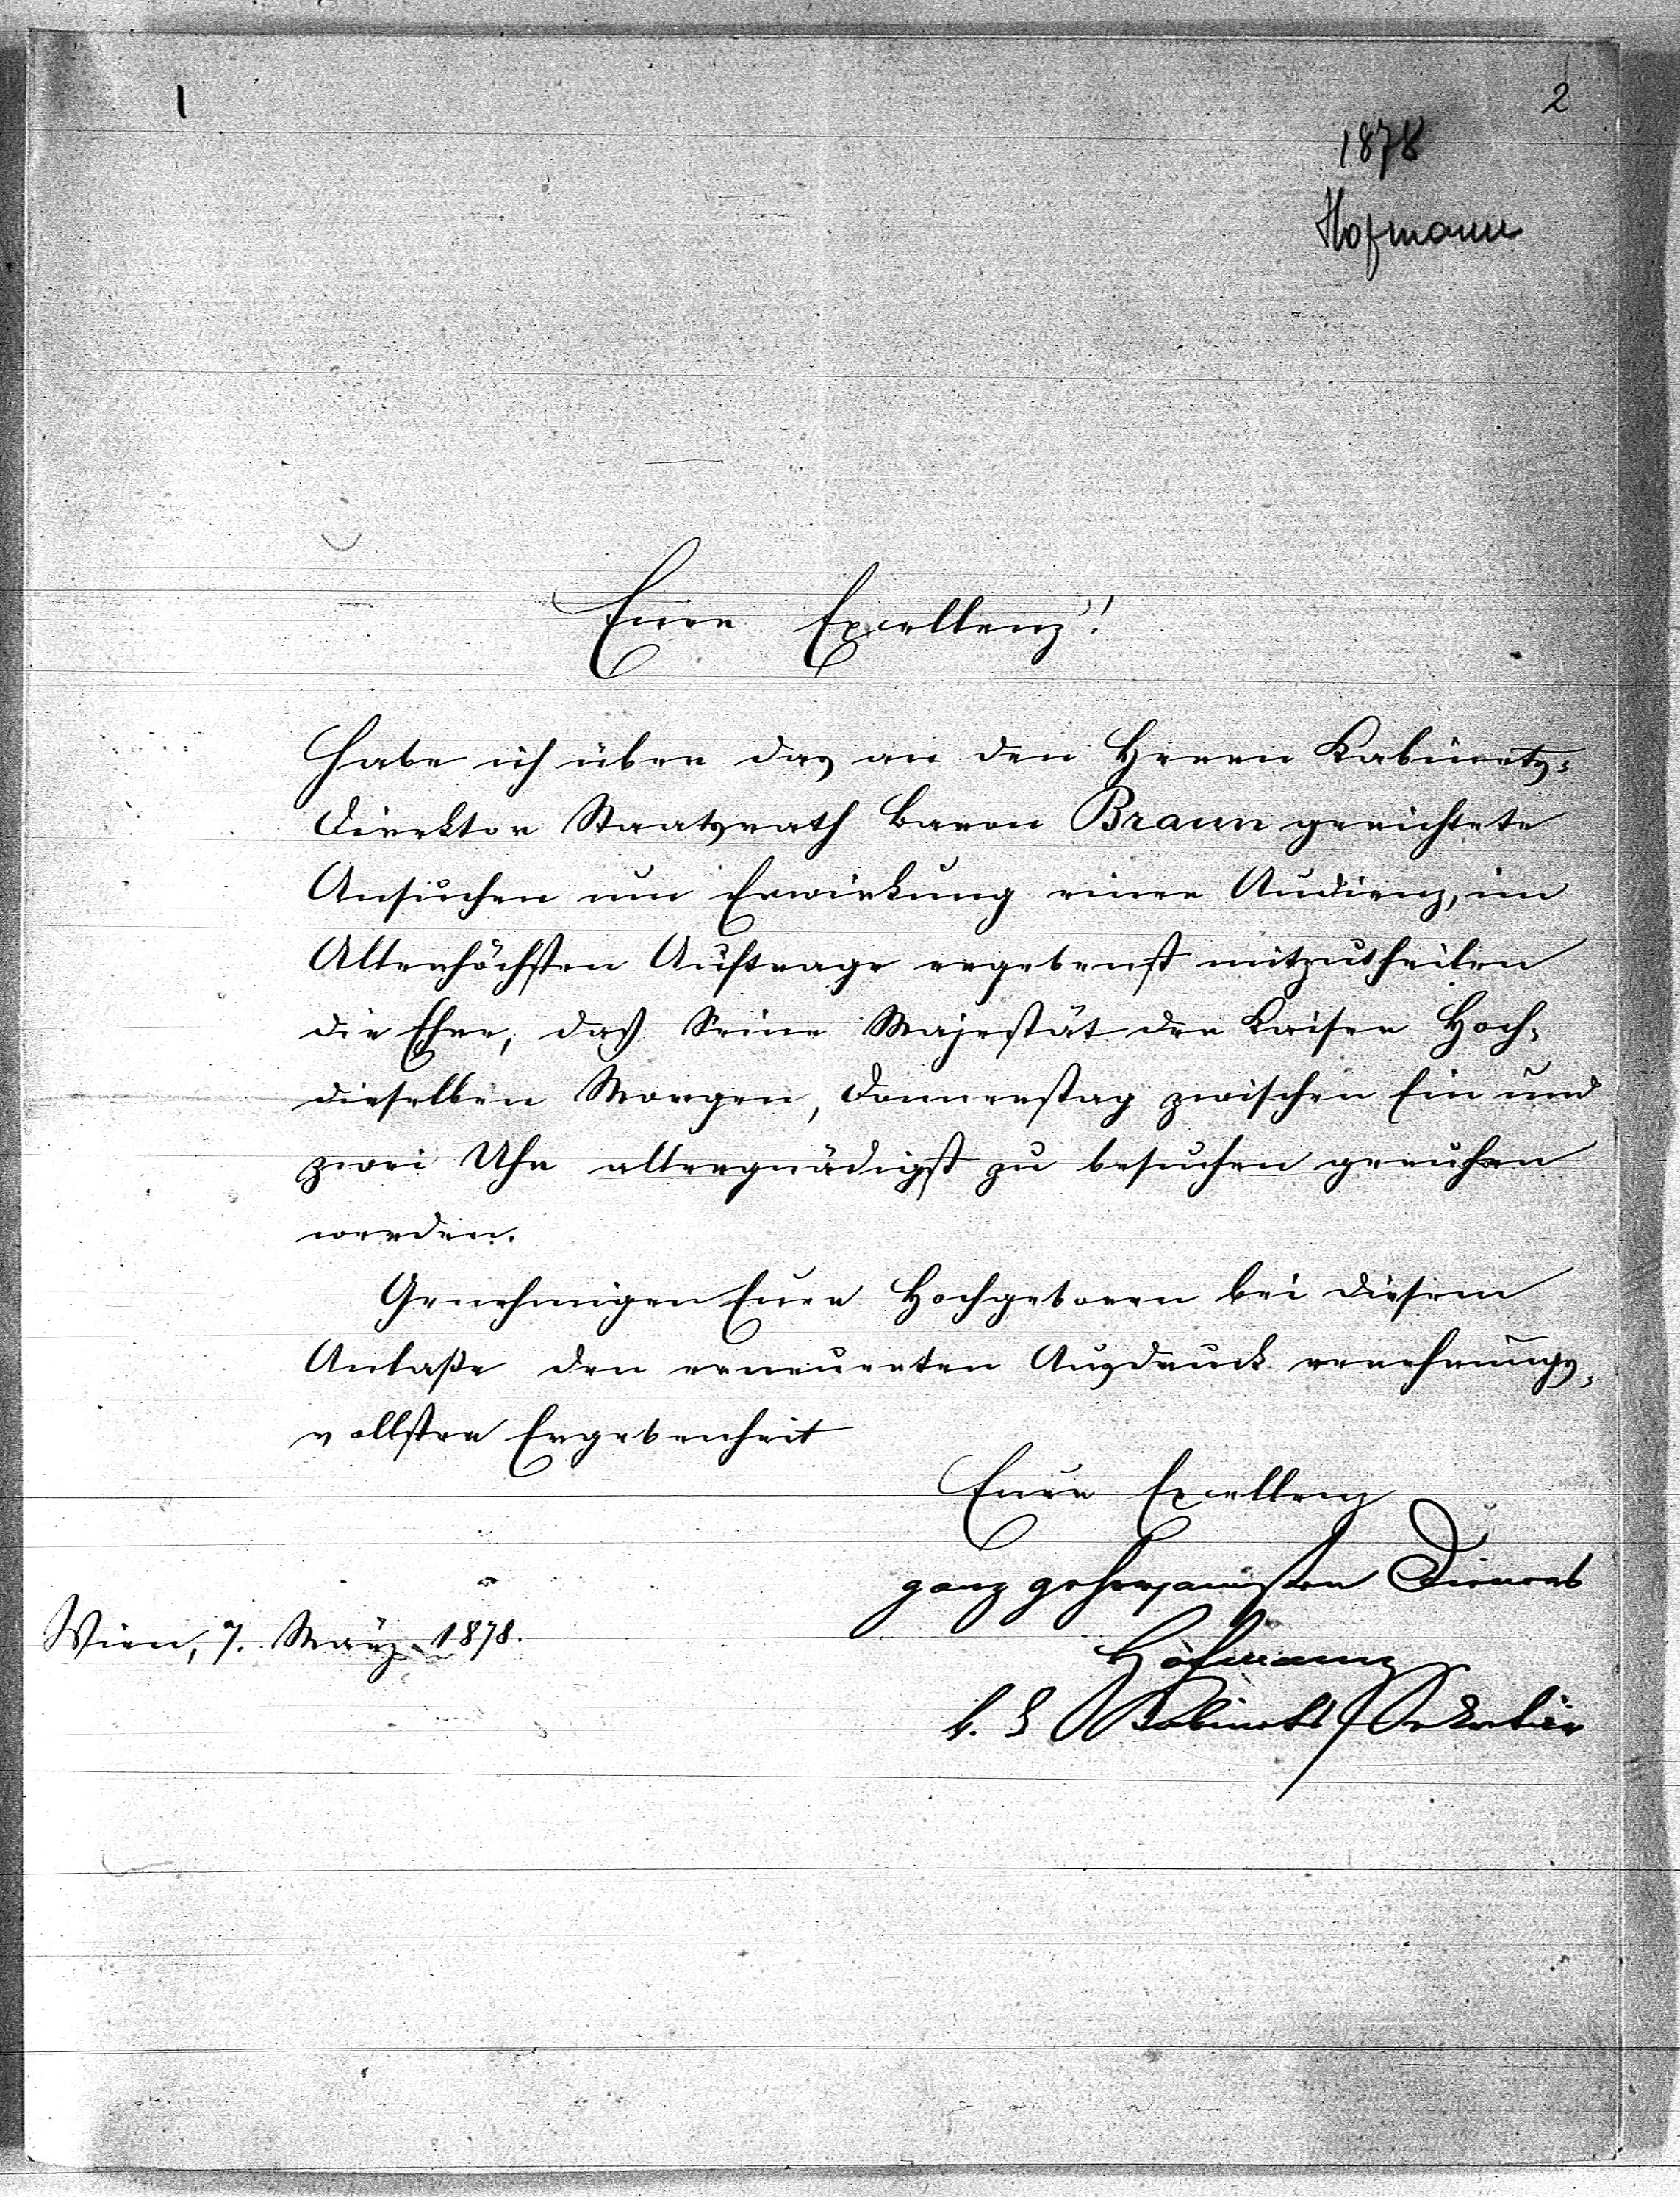 1
2
1878
Hofmann
Eure Excellenz!
Habe ich über das an den Herrn Kabinets-
Direktor Staatsrath Baron Braun gerichtete
Ansuchen um Erwirkung einer Audienz, im
Allerhöchsten Auftrage ergebenst mitzutheilen
die Ehre, daß Seine Majestät der Kaiser Hoch-
dieselben Morgen, Donnerstag zwischen Ein und
zwei Uhr allergnädigst zu besuchen geruhen
werden.
Genehmigen Euer Hochgeboren bei diesem
Anlaße den erneuerten Ausdruck verehrungs-
vollster Ergebenheit
Eurer Excellenz
ganz gehorsamsten Dieners
Hofmann
k. k Kabinets Sekretär
Wien, 7. März 1878.